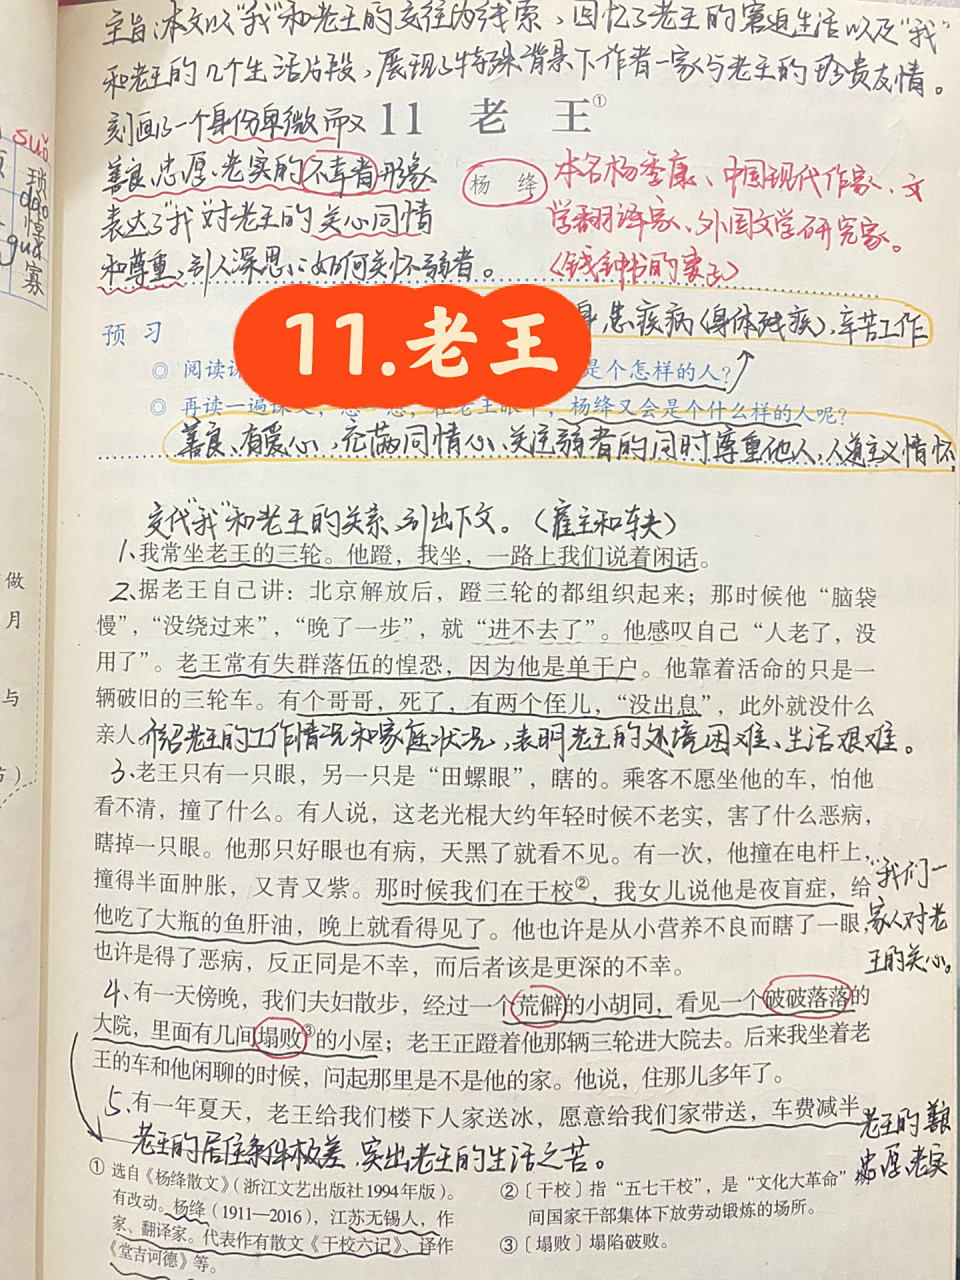 主旨:本文以“我”和老王的交往为线索,回忆了老王的窘迫生活以及“我”
和老王的几个生活片段,展现了特殊背景下作者一家与老王的珍贵友情。
刻画了一个身份卑微而又
善良、忠厚、老实的不幸者形象
表达了“我”对老王的关心同情
和尊重,引人深思:如何关怀弱者。
11 老 王①
杨 绛
本名杨季康、中国现代作家、文
学翻译家、外国文学研究家。
(钱钟书的妻子)
suǒ
琐
惶
guǎ
寡
11.老王
身患疾病(身体残疾),辛苦工作
预 习
◎ 阅读课
是个怎样的人?
◎ 再读一遍课文,想一想,在老王眼中,杨绛又会是个什么样的人呢?
善良、有爱心、充满同情心、关注弱者的同时尊重他人,人道主义情怀
交代“我”和老王的关系,引出下文。(雇主和车夫)
1、我常坐老王的三轮。他蹬,我坐,一路上我们说着闲话。
2、据老王自己讲:北京解放后,蹬三轮的都组织起来;那时候他“脑袋
慢”,“没绕过来”,“晚了一步”,就“进不去了”。他感叹自己“人老了,没
用了”。老王常有失群落伍的惶恐,因为他是单干户。他靠着活命的只是一
辆破旧的三轮车。有个哥哥,死了,有两个侄儿,“没出息”,此外就没什么
亲人
介绍老王的工作情况和家庭状况,表明老王的处境困难、生活艰难。
3、老王只有一只眼,另一只是“田螺眼”,瞎的。乘客不愿坐他的车,怕他
看不清,撞了什么。有人说,这老光棍大约年轻时候不老实,害了什么恶病,
瞎掉一只眼。他那只好眼也有病,天黑了就看不见。有一次,他撞在电杆上,
撞得半面肿胀,又青又紫。那时候我们在干校②,我女儿说他是夜盲症,给
他吃了大瓶的鱼肝油,晚上就看得见了。他也许是从小营养不良而瞎了一眼,
也许是得了恶病,反正同是不幸,而后者该是更深的不幸。
“我们一
家人对老
王的关心。
4、有一天傍晚,我们夫妇散步,经过一个荒僻的小胡同,看见一个破破落落的
大院,里面有几间塌败③的小屋;老王正蹬着他那辆三轮进大院去。后来我坐着老
王的车和他闲聊的时候,问起那里是不是他的家。他说,住那儿多年了。
5、有一年夏天,老王给我们楼下人家送冰,愿意给我们家带送,车费减半
老王的善良
忠厚老实
老王的居住条件极差,突出老王的生活之苦。
① 选自《杨绛散文》(浙江文艺出版社1994年版)。
有改动。杨绛(1911—2016),江苏无锡人,作
家、翻译家。代表作有散文《干校六记》、译作
《堂吉诃德》等。
②〔干校〕指“五七干校”,是“文化大革命”期
间国家干部集体下放劳动锻炼的场所。
③〔塌败〕塌陷破败。
做
月
与